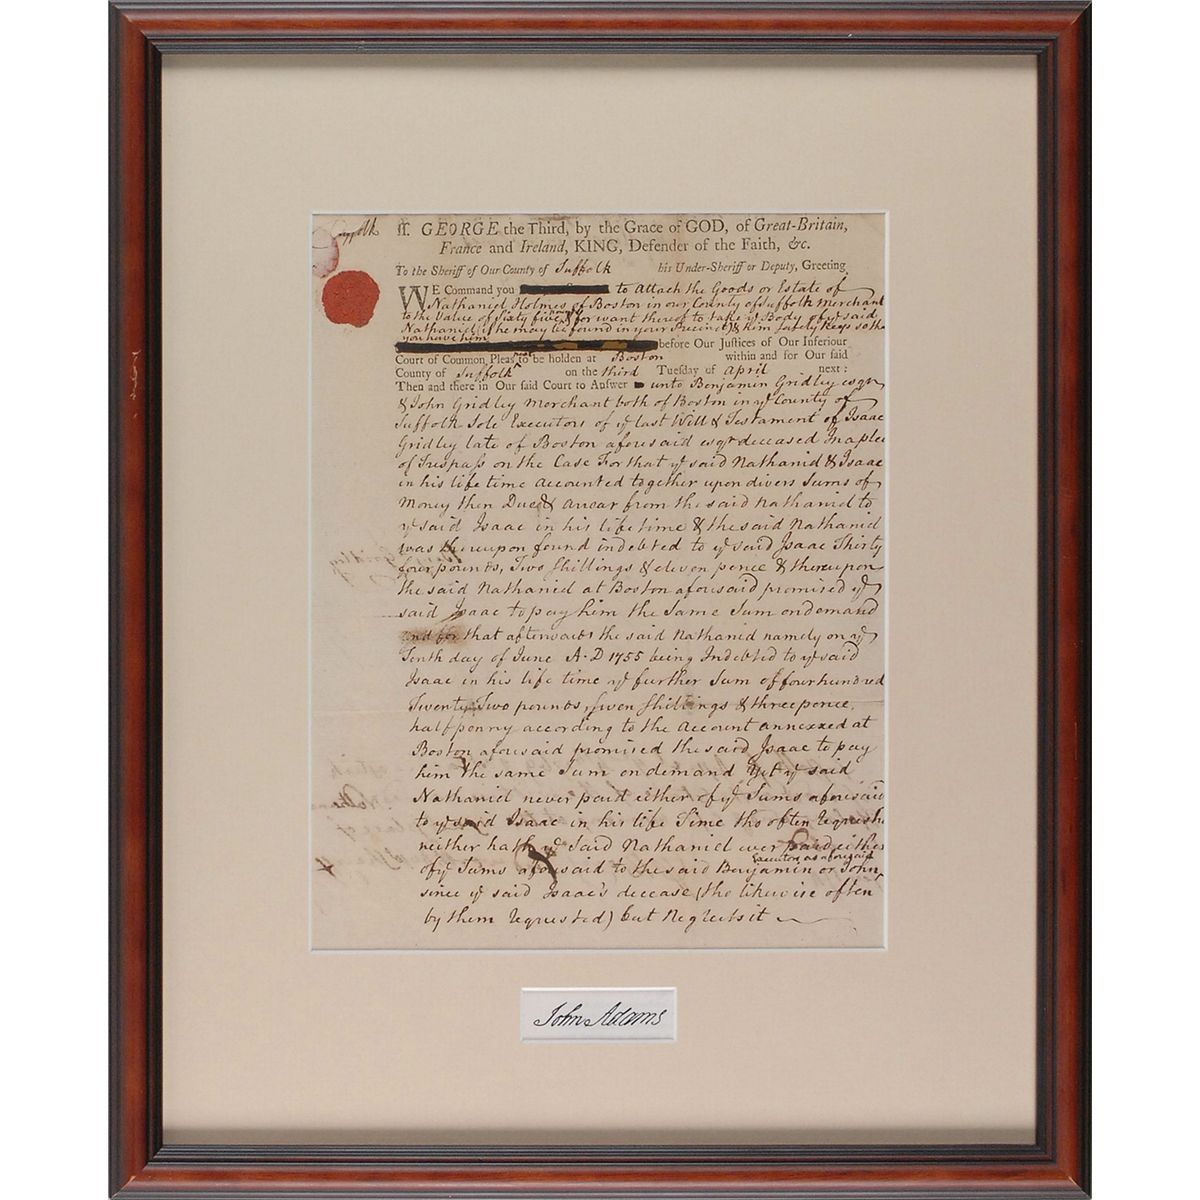 Suffolk ss. GEORGE the Third, by the Grace of GOD, of Great-Britain,
France and Ireland, KING, Defender of the Faith, &c.
To the Sheriff of Our County of Suffolk his Under-Sheriff or Deputy, Greeting
WE Command you to Attach the Goods or Estate of
Nathaniel Holmes of Boston in our County of Suffolk Merchant
to the Value of Sixty five pounds & for want thereof to take ye Body of ye said
Nathaniel (if he may be found in your Precinct) & him safely keep so tha
you have him before Our Justices of Our Inferiour
Court of Common Pleas next to be holden at Boston within and for Our said
County of Suffolk on the third Tuesday of April next:
Then and there in Our said Court to Answer unto Benjamin Gridley esqr
& John Gridley Merchant both of Boston in ye County of
Suffolk Sole Executors of ye last Will & Testament of Isaac
Gridley late of Boston aforesaid esqr deceased In a plea
of Trespass on the Case For that ye said Nathaniel & Isaac
in his life time accounted together upon divers Sums of
Money then Due & arrear from the said Nathaniel to
ye said Isaac in his life time & the said Nathaniel
was thereupon found indebted to ye said Isaac Thirty
four pounds, Two Shillings & eleven pence & thereupon
the said Nathaniel at Boston aforesaid promised ye
said Isaac to pay him the Same Sum on demand
and for that afterwards the said Nathaniel namely on ye
Tenth day of June A.D 1755 being Indebted to ye said
Isaac in his life time ye further Sum of four hundred
Twenty Two pounds, Seven Shillings & three pence
half penny according to the Account annexed at
Boston aforesaid promised the said Isaac to pay
him the same Sum on demand Yet ye said
Nathaniel never paid either of ye Sums aforesaid
to ye said Isaac in his life Time tho often requeste
neither hath ye Said Nathaniel ever paid either
of ye Sums aforesaid to the said Benjamin or John Executors as aforesaid
since ye said Isaac's decease (tho likewise often
by them requested) but Neglects it
John Adams